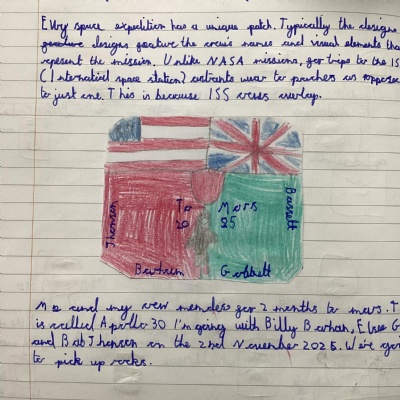 Evry space expedition has a unique patch. Typically the designs
designs feature the crew's names and visual elements tha
repesent the mission. Unlike NASA missions, for trips to the IS
(Internatiol space station) astronts wear to patches as oppose
to just one. This is because ISS crews overlap.
To Mars
20 25
Jhonson
Bassett
Barhan Gobbett
Me and my crew memders for 2 months to mars. T
is called Apollo 30 I'm going with Billy Barhan, Elsee G
and Bob Jhonson on the 2nd November 2025. We're goi
to pick up rocks.